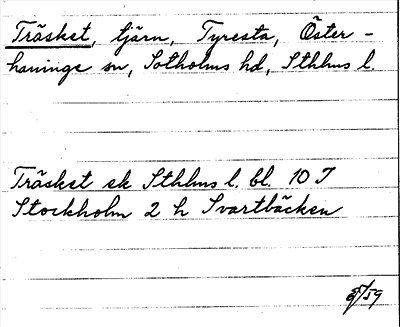 Träsket, tjärn, Tyresta, Öster-
haninge sn, Sotholms hd, Sthlms l.
Träsket ek Sthlms l. bl. 10 I
Stockholm 2 h Svartbäcken
/59